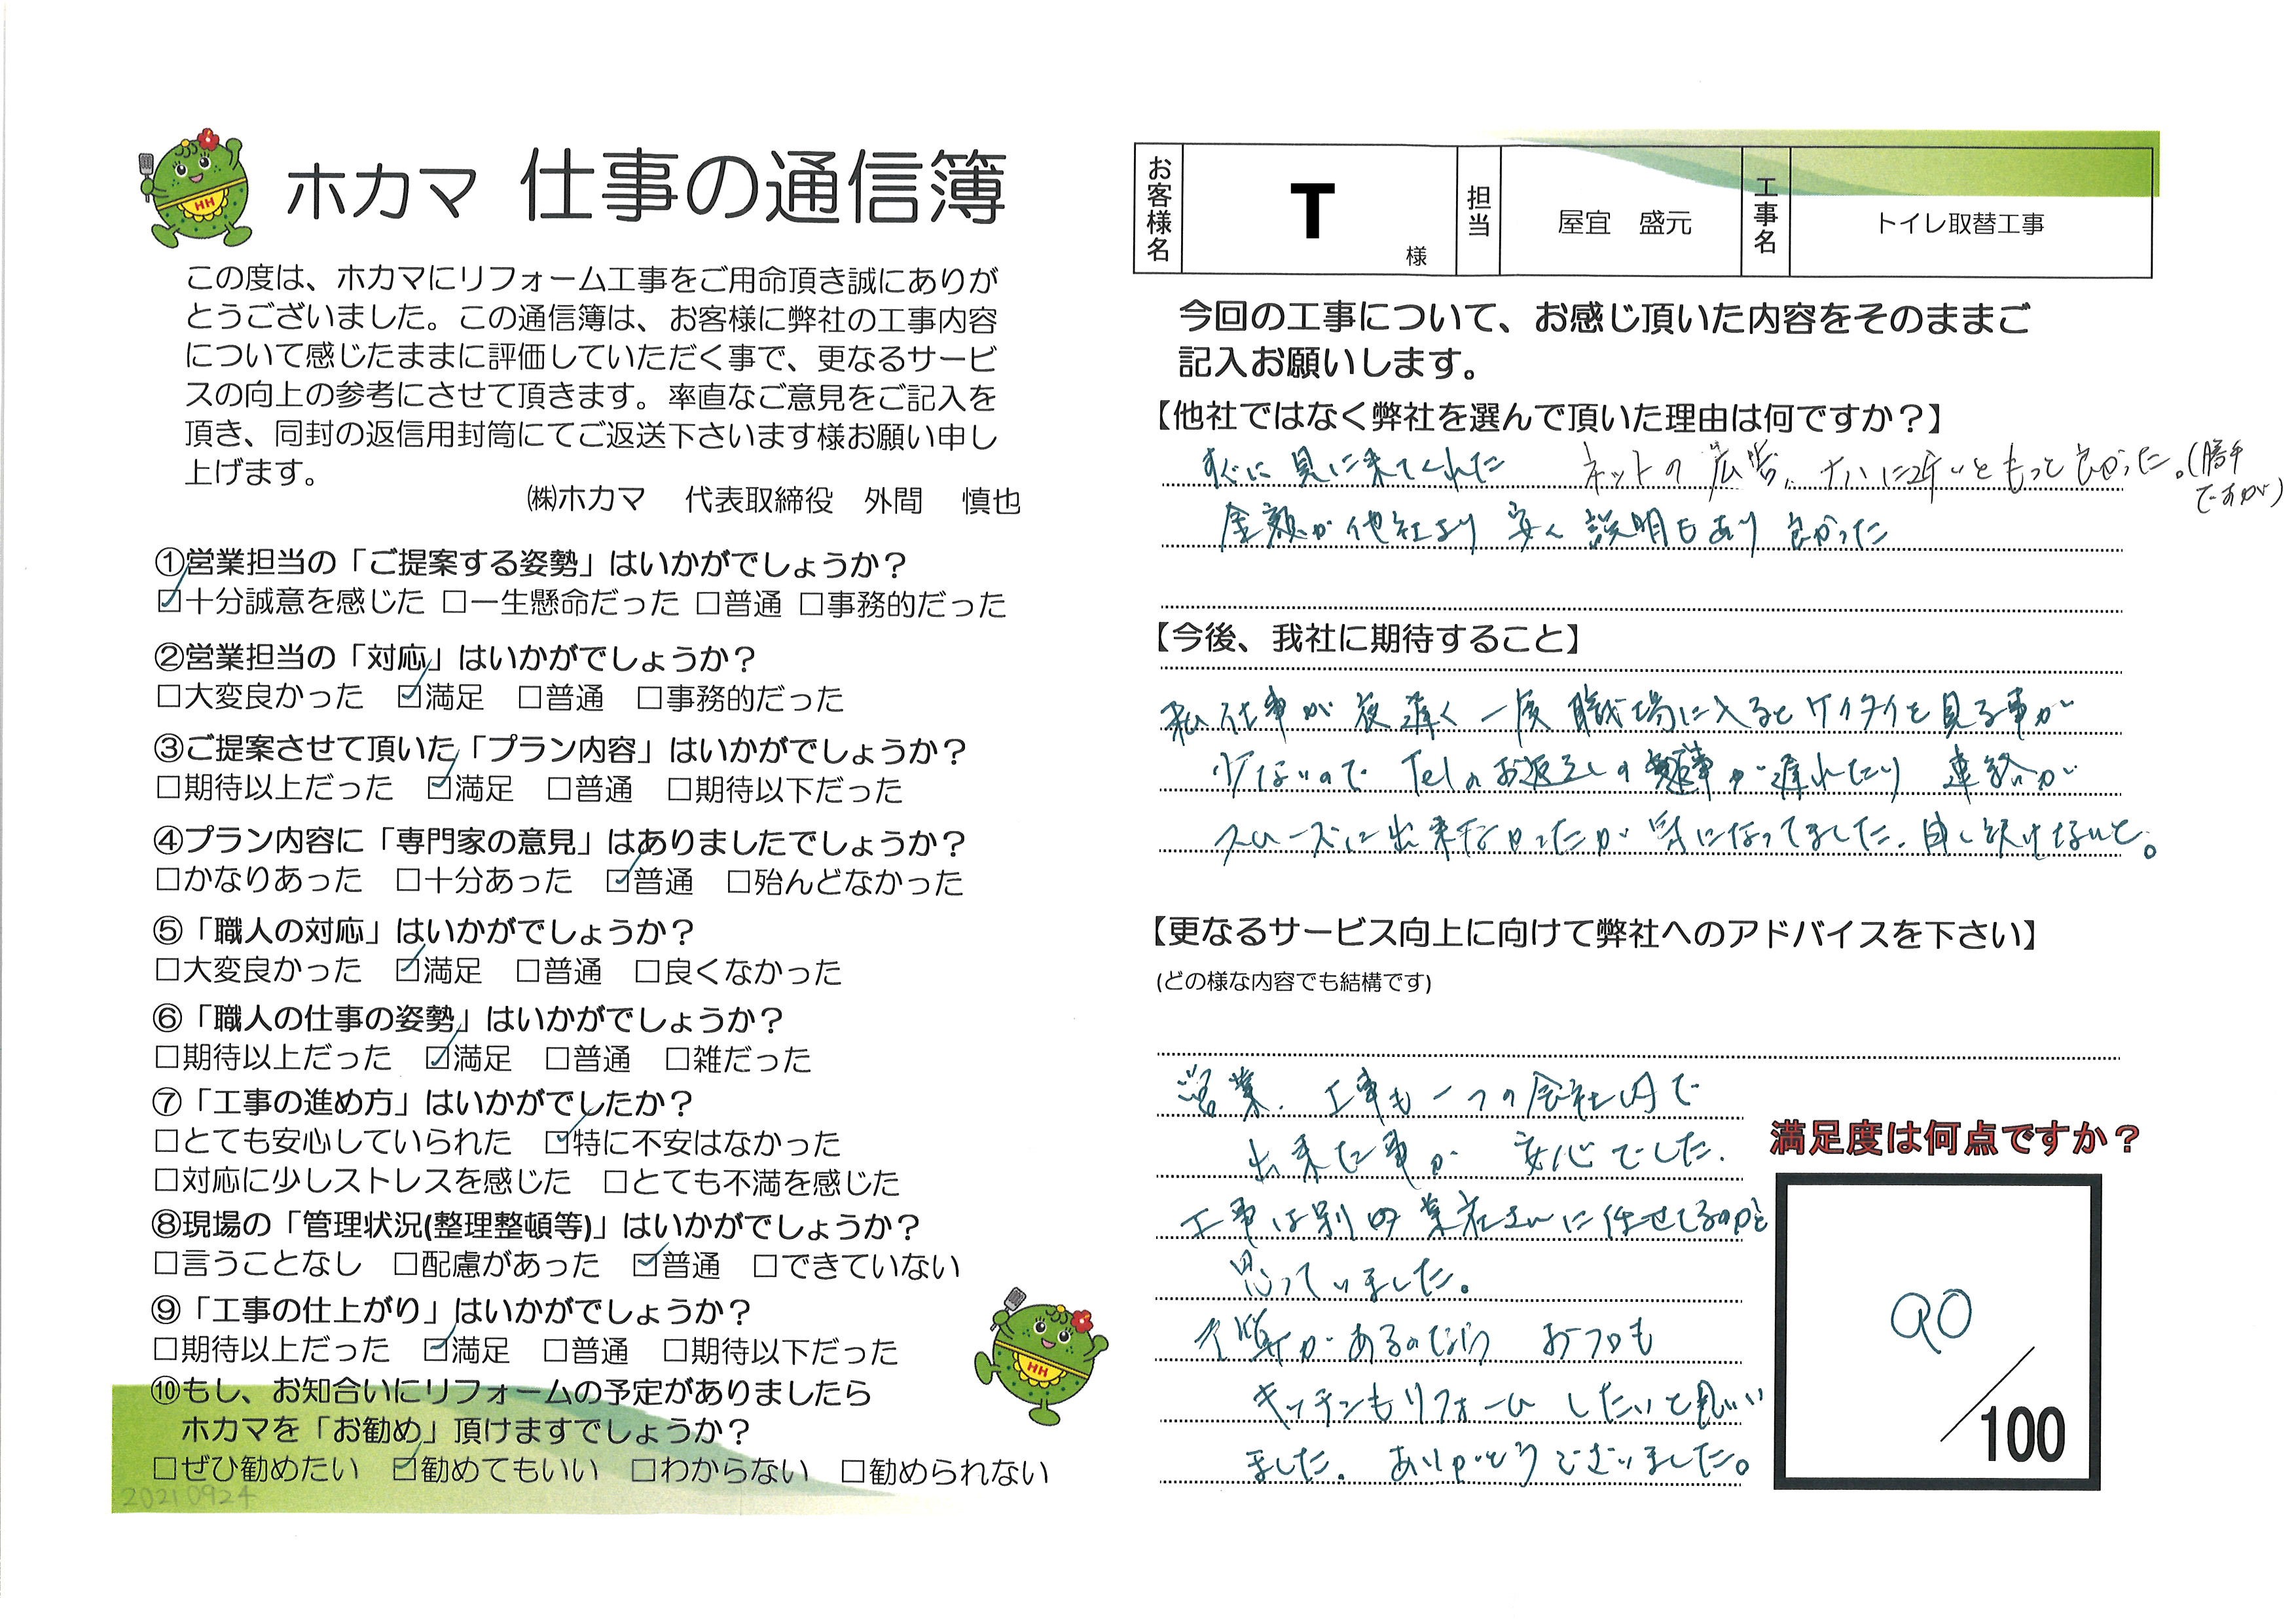 ホカマ 仕事の通信簿
この度は、ホカマにリフォーム工事をご用命頂き誠にありが
とうございました。この通信簿は、お客様に弊社の工事内容
について感じたままに評価していただく事で、更なるサービ
スの向上の参考にさせて頂きます。率直なご意見をご記入を
頂き、同封の返信用封筒にてご返送下さいます様お願い申し
上げます。
㈱ホカマ 代表取締役 外間 慎也
①営業担当の「ご提案する姿勢」はいかがでしょうか？
☑十分誠意を感じた □一生懸命だった □普通 □事務的だった
②営業担当の「対応」はいかがでしょうか？
□大変良かった ☑満足 □普通 □事務的だった
③ご提案させて頂いた「プラン内容」はいかがでしょうか？
□期待以上だった ☑満足 □普通 □期待以下だった
④プラン内容に「専門家の意見」はありましたでしょうか？
□かなりあった □十分あった ☑普通 □殆んどなかった
⑤「職人の対応」はいかがでしょうか？
□大変良かった ☑満足 □普通 □良くなかった
⑥「職人の仕事の姿勢」はいかがでしょうか？
□期待以上だった ☑満足 □普通 □雑だった
⑦「工事の進め方」はいかがでしたか？
□とても安心していられた ☑特に不安はなかった
□対応に少しストレスを感じた □とても不満を感じた
⑧現場の「管理状況(整理整頓等)」はいかがでしょうか？
□言うことなし □配慮があった ☑普通 □できていない
⑨「工事の仕上がり」はいかがでしょうか？
□期待以上だった ☑満足 □普通 □期待以下だった
⑩もし、お知合いにリフォームの予定がありましたら
ホカマを「お勧め」頂けますでしょうか？
□ぜひ勧めたい ☑勧めてもいい □わからない □勧められない
20210924
HH
HH
お客様名 T 様 担当 屋宜 盛元 工事名 トイレ取替工事
今回の工事について、お感じ頂いた内容をそのままご
記入お願いします。
【他社ではなく弊社を選んで頂いた理由は何ですか？】
すぐに見に来てくれた ネットの広告、 に近いともっと良かった。(勝手
ですが)
金額が他社より安く説明もあり良かった
【今後、我社に期待すること】
私仕事が夜遅く一度職場に入るとケイタイを見る事が
少ないので Telのお返しの が遅れたり 連絡が
スムーズに出来なかったが気になってました。申し訳けないと。
【更なるサービス向上に向けて弊社へのアドバイスを下さい】
(どの様な内容でも結構です)
営業、工事も一つの会社内で
出来た事が 安心でした。
工事は別の業社さんに任せてるのかと
思っていました。
予算があるのなら おフロも
キッチンもリフォーム したいと思い
ました。ありがとうございました。
満足度は何点ですか？
90
／100